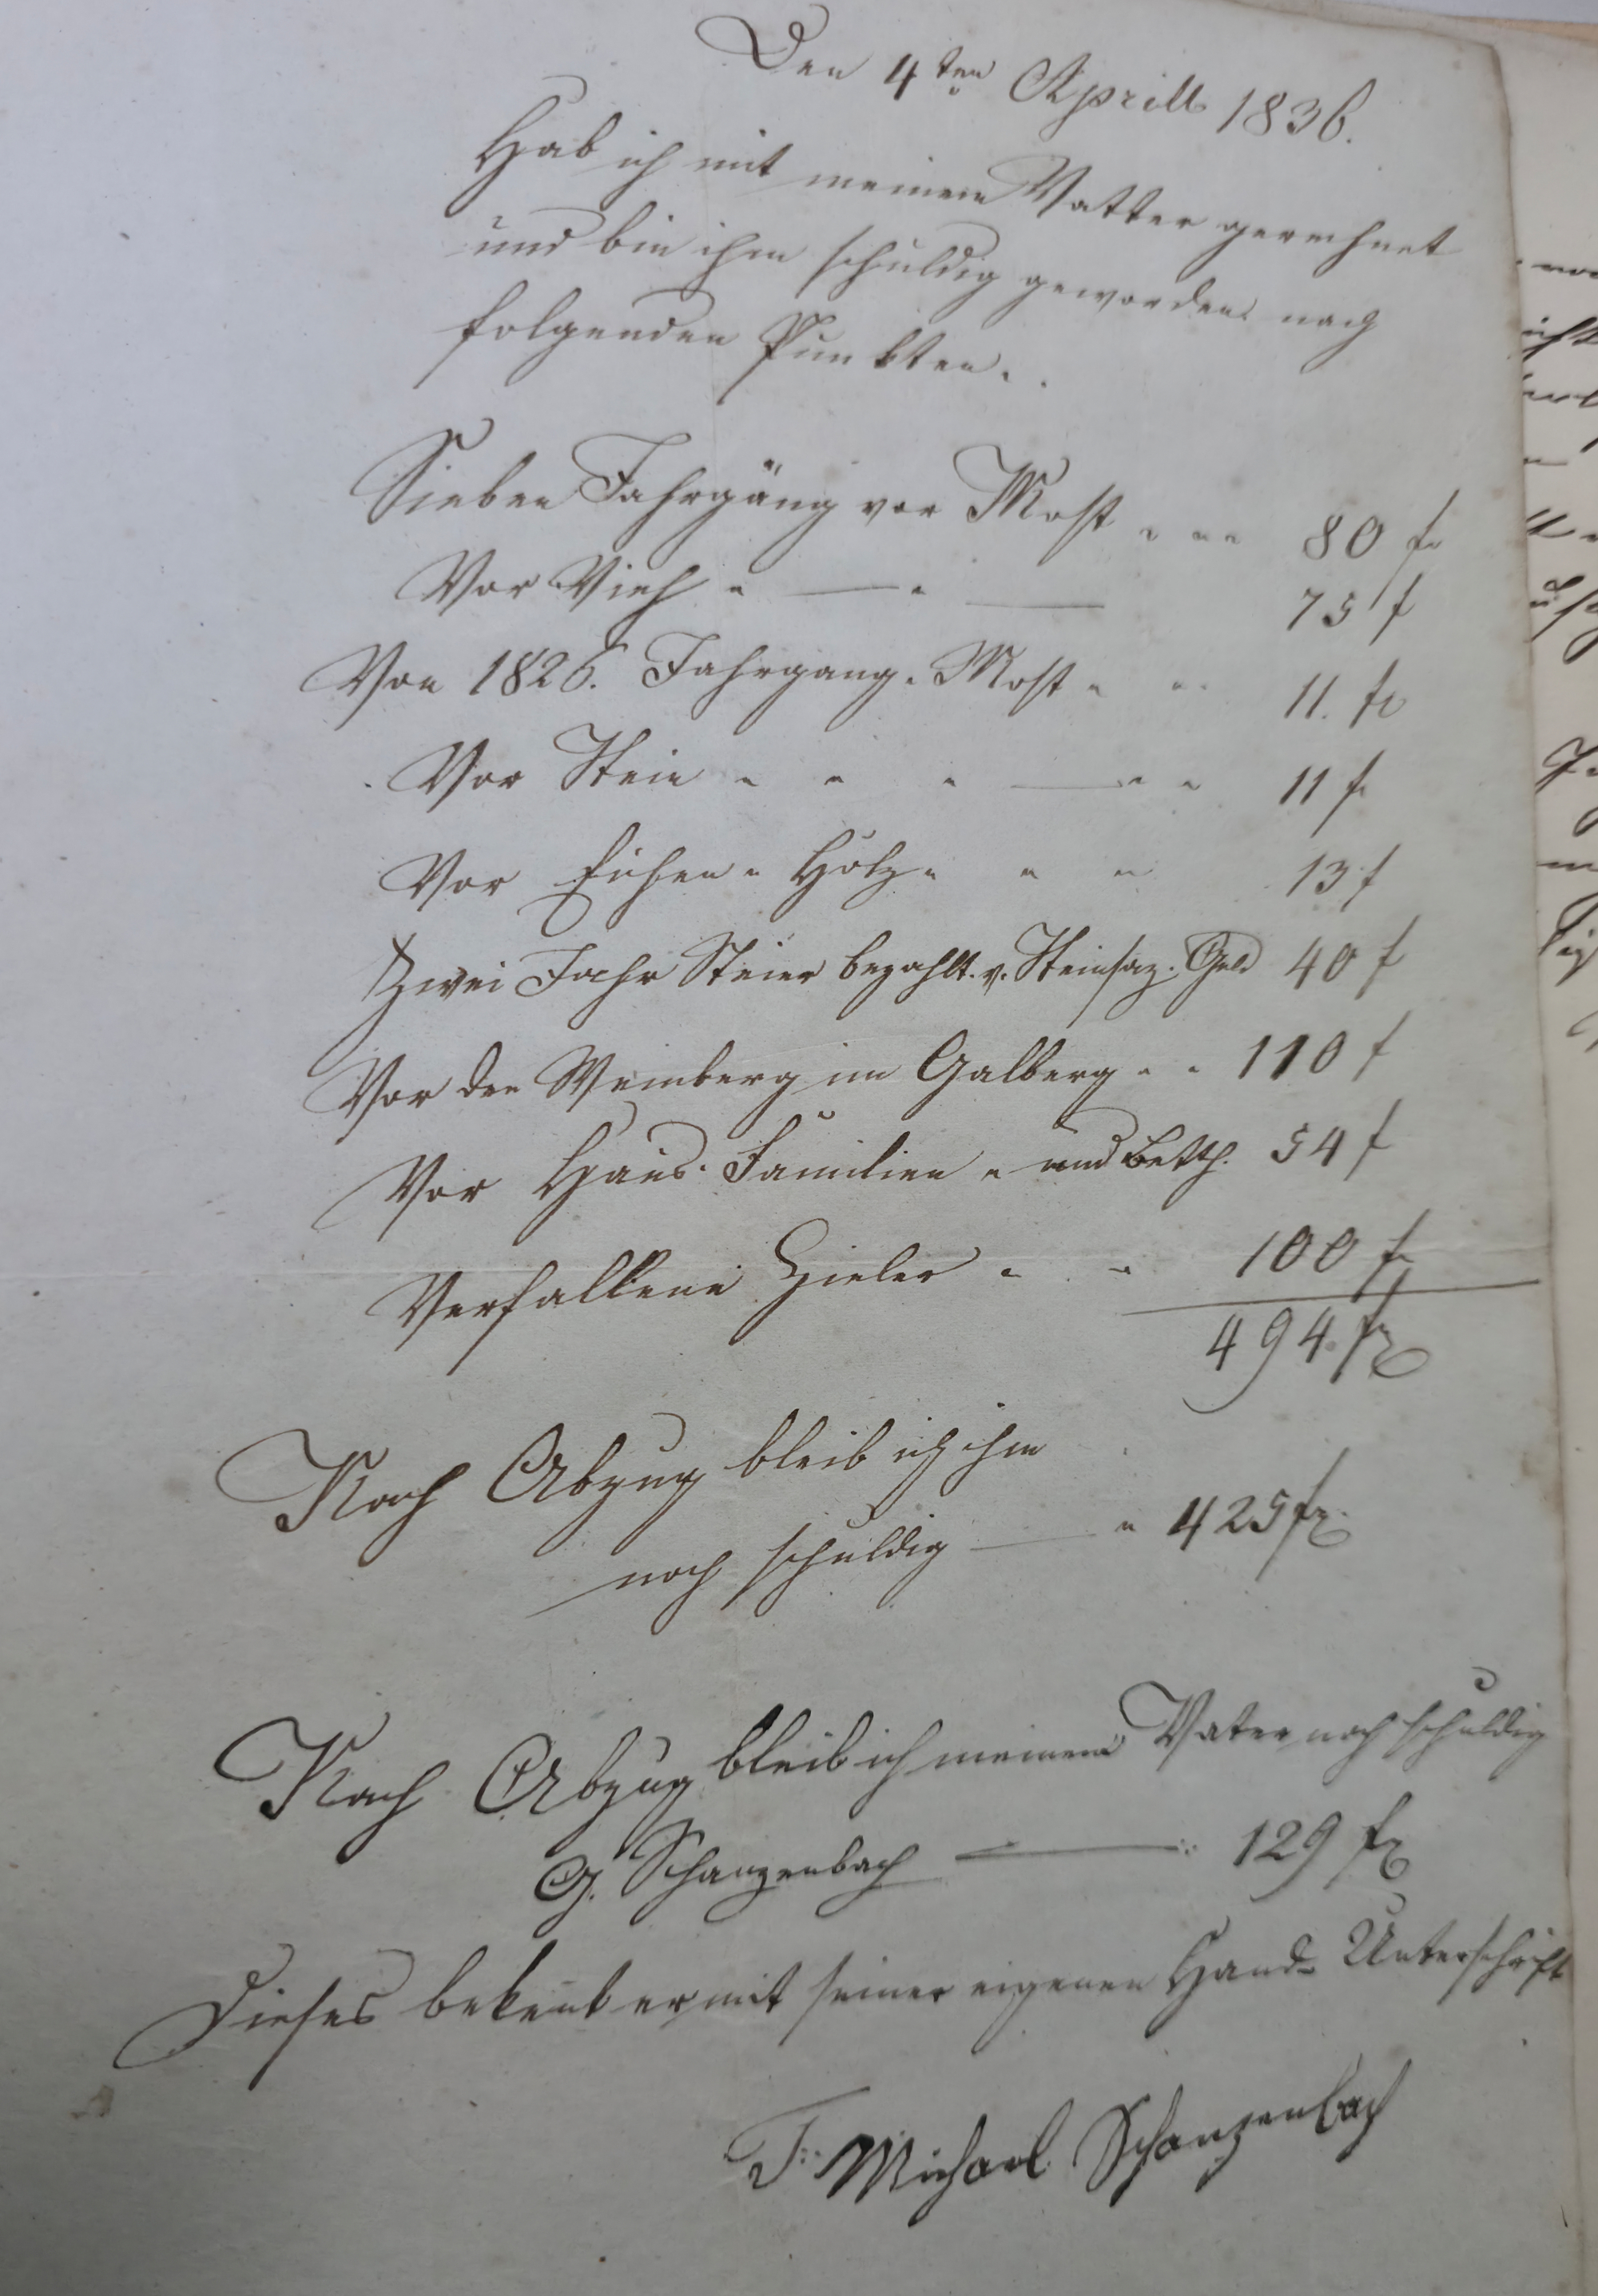 Den 4ten Aprill 1836.
Hab ich mit meinem Vatter gerechnet
und bin ihm schuldig geworden nach
folgenden Punkten.
Sieben Jahrgäng vor Most 80 f
Vor Vieh 75 f
Von 1826. Jahrgang Most 11. f
Vor Stein 11 f
Vor Eichen Holz 13 f
Zwei Jahr Steier bezahlt. v. Steinsaz. Geld 40 f
Vor den Weinberg im Galberg 110 f
Vor Haus. Familien und Betth. 54 f
Verfallene Zieler 100 f
494 f
Nach Abzug bleib ich ihm
noch schuldig 425 f
Nach Abzug bleib ich meinem Vater noch schuldig
G. Schanzenbach 129 f
Dieses bekent er mit seiner eigenen Hand- Unterschrift
J. Michael Schanzenbach